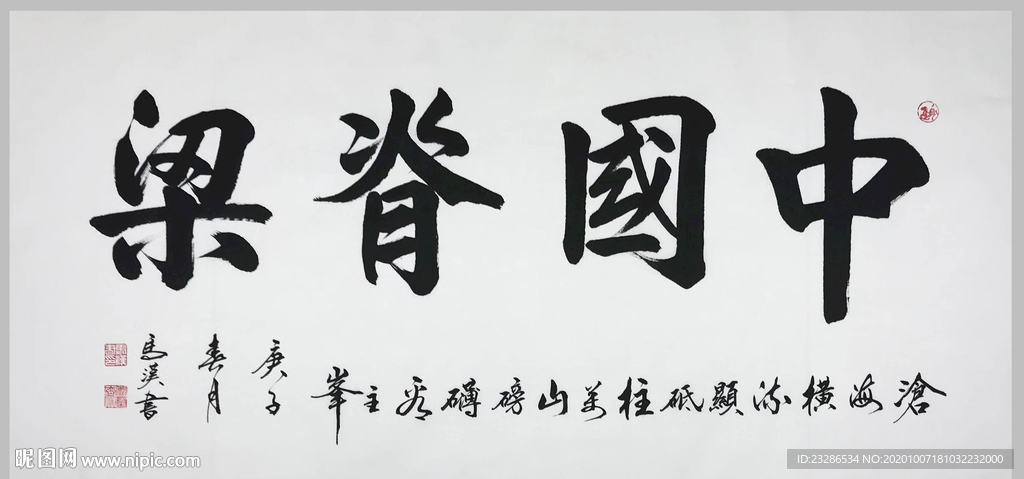 中國脊梁
滄海橫流顯砥柱萬山磅礴看主峯
庚子
春月
馬漢書
昵图网 www.nipic.com
ID:23286534 NO:20201007181032232000